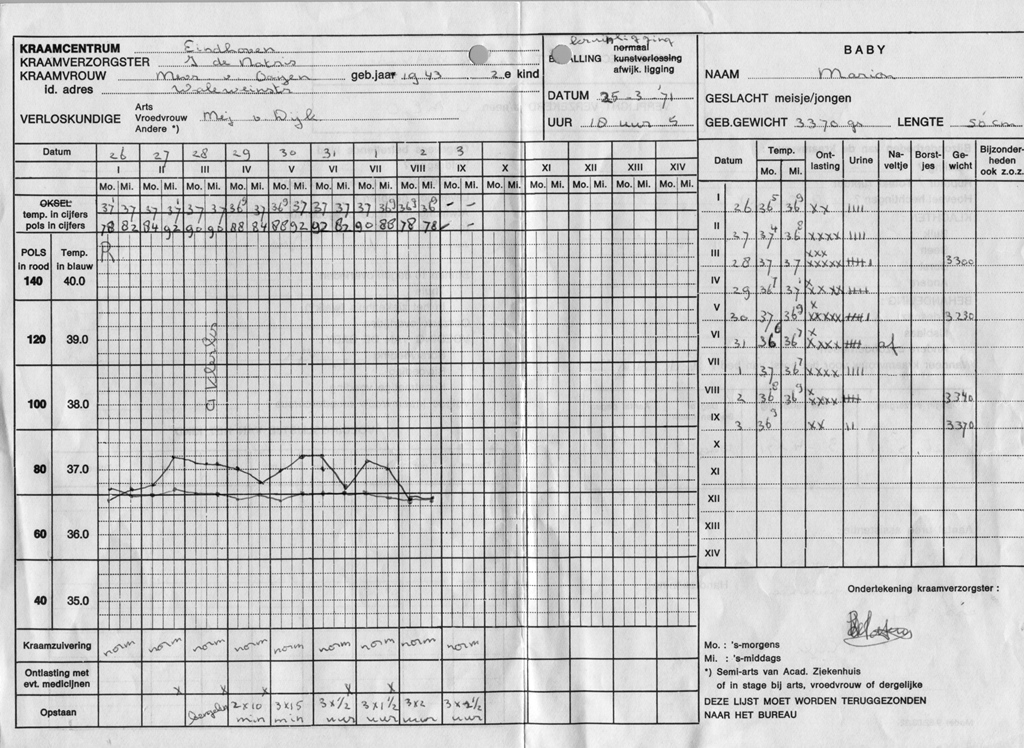 KRAAMCENTRUM Eindhoven
KRAAMVERZORGSTER
KRAAMVROUW geb.jaar 1943 2.e kind
id. adres
VERLOSKUNDIGE Arts
Vroedvrouw
Andere *)
normaal
BEVALLING kunstverlossing
afwijk. ligging
DATUM 25-3-'71
UUR 18 uur 5
BABY
NAAM Marion
GESLACHT meisje/jongen
GEB.GEWICHT 3370 gr LENGTE 50 cm
Datum 26 27 28 29 30 31 1 2 3
I II III IV V VI VII VIII IX X XI XII XIII XIV
Mo. Mi. Mo. Mi. Mo. Mi. Mo. Mi. Mo. Mi. Mo. Mi. Mo. Mi. Mo. Mi. Mo. Mi. Mo. Mi. Mo. Mi. Mo. Mi. Mo. Mi. Mo. Mi.
OKSEL
temp. in cijfers
pols in cijfers 78 82 84 92 90 90 88 84 88 92 92 82 90 88 78 78 - -
POLS Temp. R
in rood in blauw
140 40.0
120 39.0
100 38.0
80 37.0
60 36.0
40 35.0
Kraamzuivering norm norm norm norm norm norm norm norm norm
Ontlasting met
evt. medicijnen x x x x x
Opstaan 2x10 min 3x15 min 3x1/2 uur 3x1 1/2 uur 3x2 uur 3x2 1/2 uur
Datum Temp. Ont-lasting Urine Na-veltje Borst-jes Ge-wicht Bijzonder-heden ook z.o.z.
Mo. Mi.
I 26 36⁵ 36⁹ xx IIII
II 27 37⁴ 36⁸ xxxx IIII
III 28 37 37 xxx xxxxx 3300
IV 29 36⁷ 37¹
V 30 37 36⁹ x xxxxx 3230
VI 31 36⁶ 36⁷ x xxxx af
VII 1 37 36⁷ xxxx IIII
VIII 2 36⁸ 36⁹ x xxxx 3340
IX 3 36⁹ xx II 3370
X
XI
XII
XIII
XIV
Ondertekening kraamverzorgster :
Mo. : 's-morgens
Mi. : 's-middags
*) Semi-arts van Acad. Ziekenhuis
of in stage bij arts, vroedvrouw of dergelijke
DEZE LIJST MOET WORDEN TERUGGEZONDEN
NAAR HET BUREAU